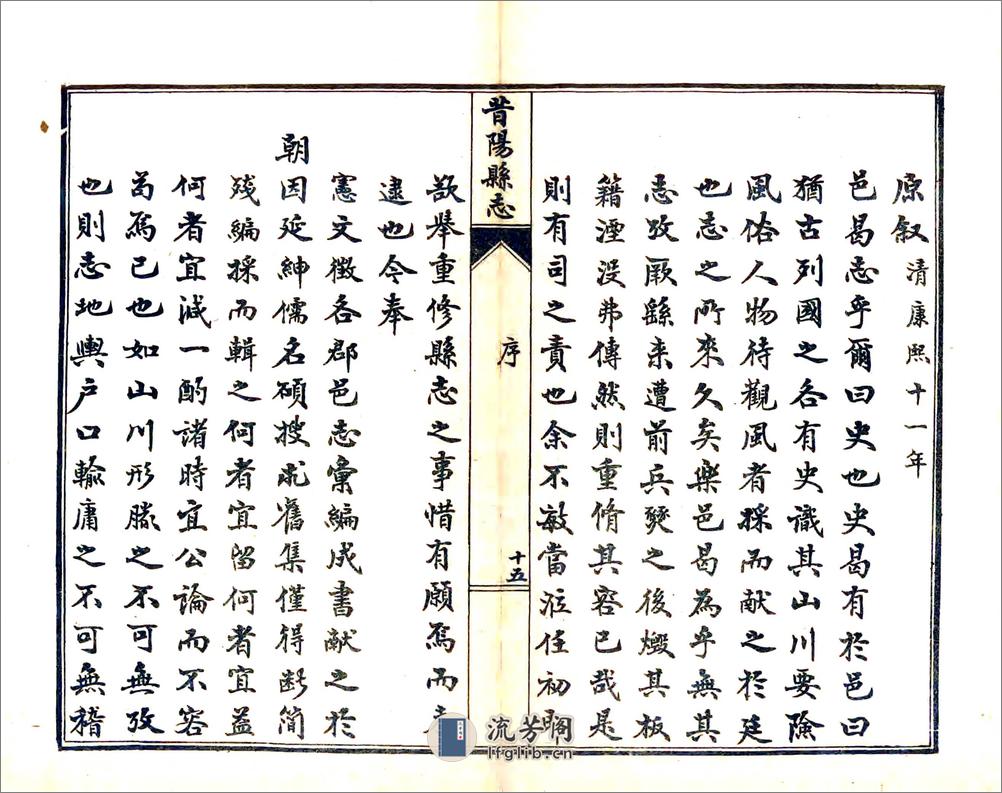 原叙 清康熙十一年
邑曷志乎爾曰史也史曷有於邑曰
猶古列國之各有史識其山川要險
風俗人物待觀風者採而献之於廷
也志之所來久矣樂邑曷為乎無其
志攷厥繇来遭前兵燹之後燬其板
籍湮没弗傳然則重脩其容已哉是
則有司之責也余不敏當涖任初
昔陽縣志
序
十五
欲舉重修縣志之事惜有願焉而
逮也今奉
憲文徵各郡邑志彙編成書献之於
朝因延紳儒名碩搜求舊集僅得断简
残編採而輯之何者宜留何者宜益
何者宜减一酌諸時宜公論而不容
苟焉已也如山川形勝之不可無攷
也則志地輿户口輸庸之不可無稽
流芳阁
lfglib.cn